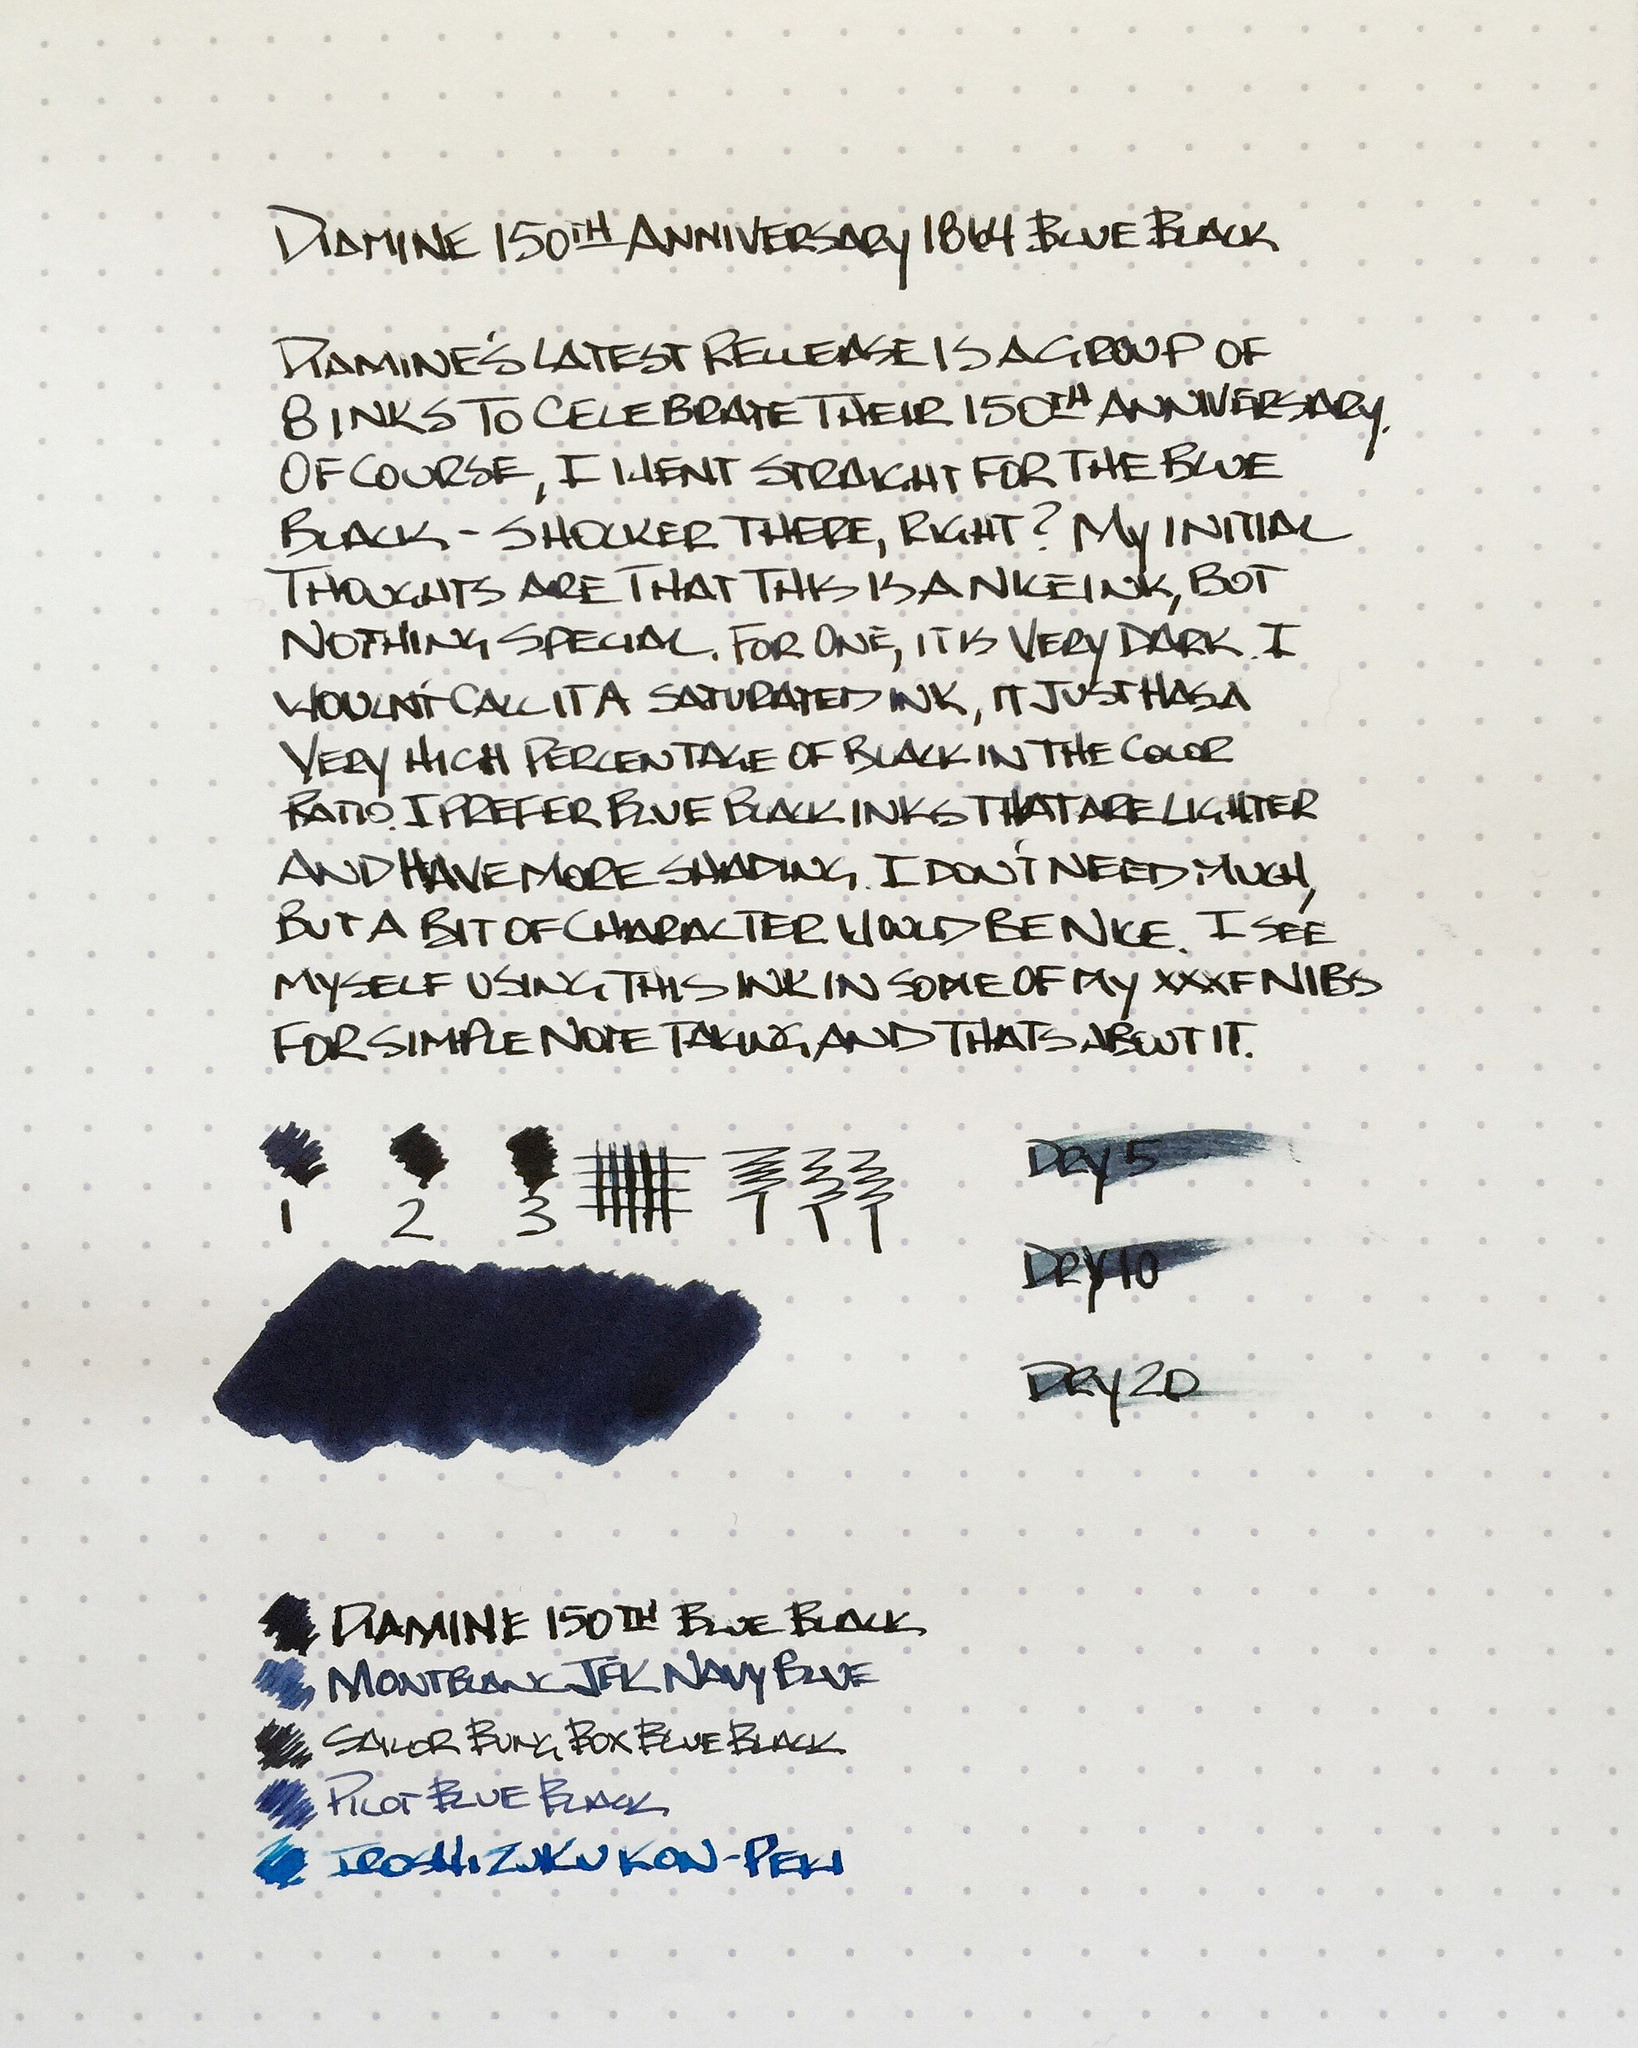 DIAMINE 150TH ANNIVERSARY 1864 BLUE BLACK
DIAMINE'S LATEST RELEASE IS A GROUP OF
8 INKS TO CELEBRATE THEIR 150TH ANNIVERSARY.
OF COURSE, I WENT STRAIGHT FOR THE BLUE
BLACK - SHOCKER THERE, RIGHT? MY INITIAL
THOUGHTS ARE THAT THIS IS A NICE INK, BUT
NOTHING SPECIAL. FOR ONE, IT IS VERY DARK. I
WOULN'T CALL IT A SATURATED INK, IT JUST HAS A
VERY HIGH PERCENTAGE OF BLACK IN THE COLOR
RATIO. I PREFER BLUE BLACK INKS THAT ARE LIGHTER
AND HAVE MORE SHADING. I DON'T NEED MUCH,
BUT A BIT OF CHARACTER WOULD BE NICE. I SEE
MYSELF USING THIS INK IN SOME OF MY XXXF NIBS
FOR SIMPLE NOTE TAKING AND THATS ABOUT IT.
1 2 3
DRY 5
DRY 10
DRY 20
DIAMINE 150TH BLUE BLACK
MONTBLANC JFK NAVY BLUE
SAILOR BUNG BOX BLUE BLACK
PILOT BLUE BLACK
IROSHIZUKU KON-PEKI